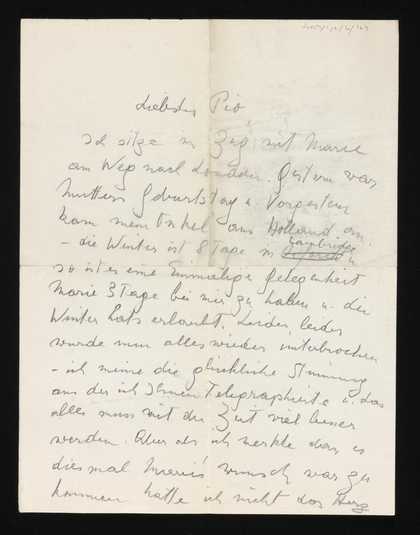 Liebster Pió
Ich sitze im Zug mit Marie
am Weg nach London. Gestern war
Mutters Geburtstag u. Vorgestern
kam mein Onkel aus Holland an.
– die Winter ist 8 Tage in Cambridge u
so ist es eine Einmalige Gelegenheit
Marie 3 Tage bei mir zu haben u. die
Winter hats erlaubt. Leider, leider
wurde nun alles wieder unterbrochen
– ich meine die glückliche Stimmung
aus der ich Ihnen Telegraphierte u. das
alles muss mit der Zeit viel besser
werden. Aber als ich merkte dass es
diesmal Maries wunsch war zu
kommen hatte ich nicht das Herz